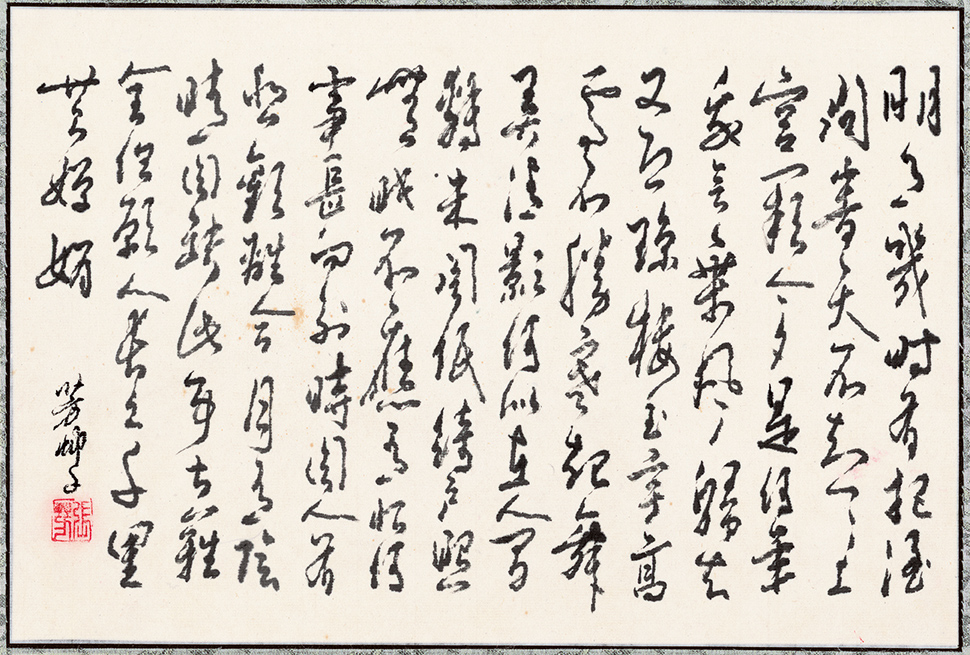 明月幾时有把酒
問青天不知天上
宮闕今夕是何年
我欲乘風歸去
又恐瓊樓玉宇高
處不勝寒起舞
弄清影何似在人間
轉朱閣低綺户照
無眠不應有恨何
事長向別時圓人有
悲歡離合月有陰
晴圓缺此事古難
全但願人長久千里
共嬋娟